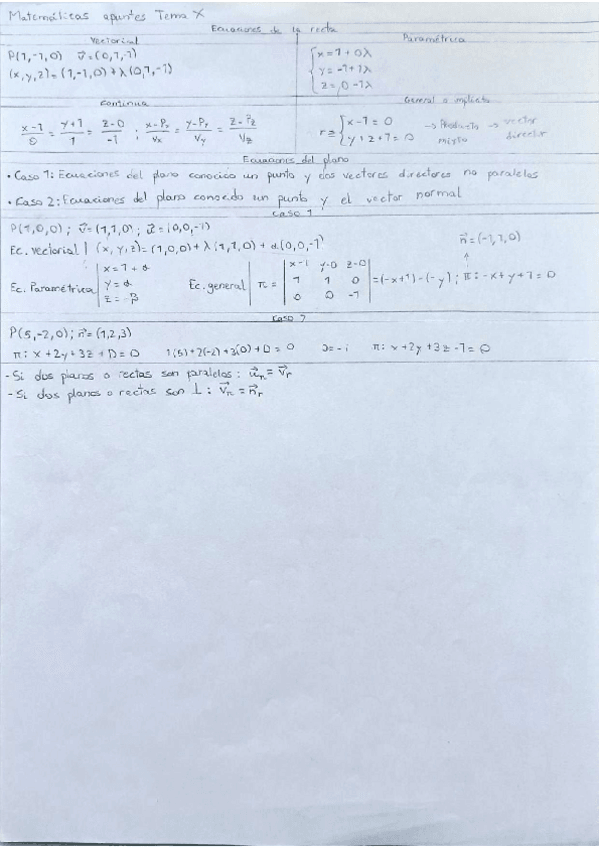 Matemáticas apuntes Tema X
Ecuaciones de la recta
Vectorial
P(1,-1,0) v⃗=(0,1,-1)
(x,y,z)=(1,-1,0)+λ(0,1,-1)
Paramétrica
x=1+0λ
y=-1+1λ
z=0-1λ
Continua
x-1/0 = y+1/1 = z-0/-1 ; x-Px/Vx = y-Py/Vy = z-Pz/Vz
General o implícita
r≡ { x-1=0
y+z+1=0 → Producto mixto → vector director
Ecuaciones del plano
• Caso 1: Ecuaciones del plano conocido un punto y dos vectores directores no paralelos
• Caso 2: Ecuaciones del plano conocido un punto y el vector normal
Caso 1
P(1,0,0); v⃗=(1,1,0); u⃗=(0,0,-1)
n⃗=(-1,1,0)
Ec. vectorial | (x,y,z)=(1,0,0)+λ(1,1,0)+α(0,0,-1)
Ec. Paramétrica | x=1+α
y=α
z=-β
Ec. general | π= | x-1 y-0 z-0 |
| 1 1 0 |
| 0 0 -1 | =(-x+1)-(-y); π:-x+y+1=0
Caso 2
P(5,-2,0); n⃗=(1,2,3)
π: x+2y+3z+D=0 1(5)+2(-2)+3(0)+D=0 π: x+2y+3z-1=0
-Si dos planos o rectas son paralelos: = v⃗r
-Si dos planos o rectas son ⊥: v⃗π=n⃗r